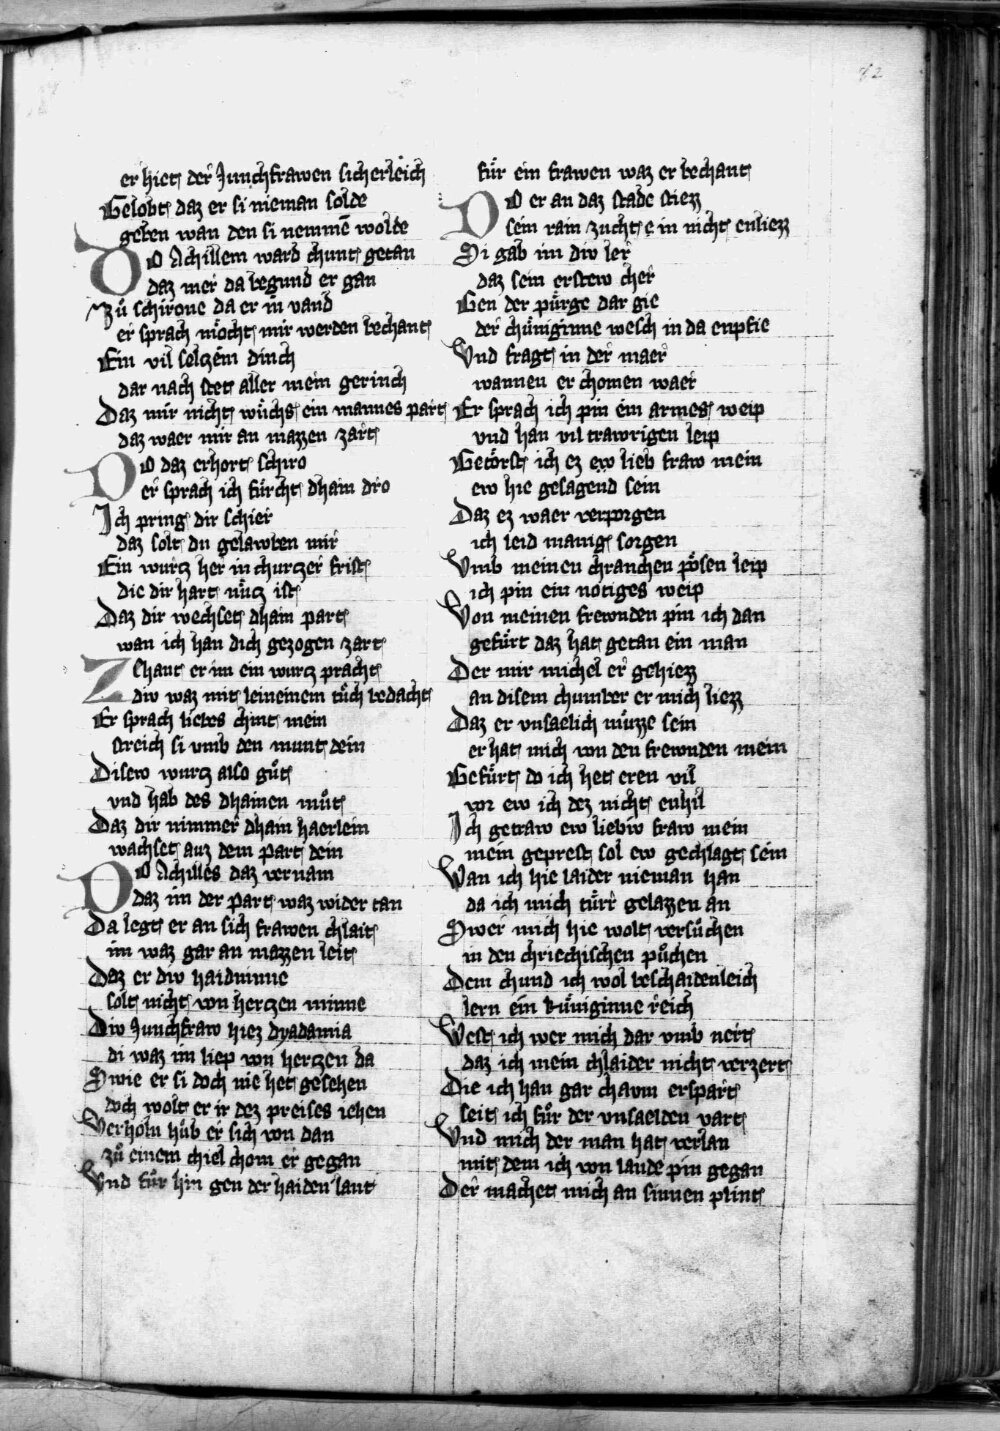 82
er hiet der Junchfrawen sicherleich
Gelobt daz er si nieman solde
geben wan den si nemmē wolde
DO Achillem ward chunt getan
daz mer da begund er gan
Zů schirone da er in vand
er sprach mőcht mir werden bechant
Ein vil selczēm dinch
dar nach stet aller mein gerinch
Daz mir nicht wůchs ein mannes part
daz waer mir an mazzen zart
DO daz erhort schiro
er sprach ich fůrcht dhain dro
Ich pring dir schier
daz solt du gelawben mir
Ein wurcz her in churczer frist
die dir hart nůcz ist
Daz dir wechset dhain part
wan ich han dich gezogen zart
Zehant er im ein wurcz pracht
diw waz mit leineinem tůch bedacht
Er sprach liebes chint mein
streich si vmb den munt dein
Disew wurcz also gůt
vnd hab des dhainen můt
Daz dir nimmer dhain haerlein
wachset auz dem part dein
DO Achilles daz vernam
daz im der part waz wider tan
Da legt er an sich frawen chlait
im waz gar an mazzen leit
Daz er diw haidninne
solt nicht von herczen minne
Diw Junchfraw hiez dyadamia
di waz im liep von herczen da
Swie er si doch nie het gesehen
doch wolt er ir dez preises iehen
Verholn hůb er sich von dan
zů einem chiel chom er gegan
Vnd fůr hin gen der haiden lant
fůr ein frawen waz er bechant
DO er an daz stade stiezz
sein rain zucht e in nicht enliezz
Si gab im diw ler
daz sein erstew cher
Gen der půrge dar gie
der chůniginne wesch in da enpfie
Vnd fragt in der maer
wannen er chomen waer
Er sprach ich pin ein armes weip
vnd han vil trawrigen leip
Getőrst ich ez ew lieb fraw mein
ew hie gesagend sein
Daz ez waer verporgen
ich leid manig sorgen
Vmb meinen chranchen pősen leip
ich pin ein nőtiges weip
Von meinen frewnden pin ich dan
gefůrt daz hat getan ein man
Der mir michel er gehiezz
an disem chumber er mich liezz
Daz er vnsaelich můzze sein
er hat mich von den frewnden mein
Gefůrt do ich het eren vil
vor ew ich dez nicht enhil
Ich getraw ew liebiw fraw mein
mein geprest sol ew gechlagt sein
Wan ich hie laider nieman han
da ich mich tůrr gelazzen an
Swer mich hie wolt versůchen
in den chriechischen půchen
Dem chund ich wol beschaidenleich
lern ein kůniginne reich
West ich wer mich dar vmb nert
daz ich mein chlaider nicht verzert
Die ich han gar chavm erspart
seit ich fůr der vnsaelden vart
Vnd mich der man hat verlan
mit dem ich von lande pin gegan
Der machet mich an sinnen plint